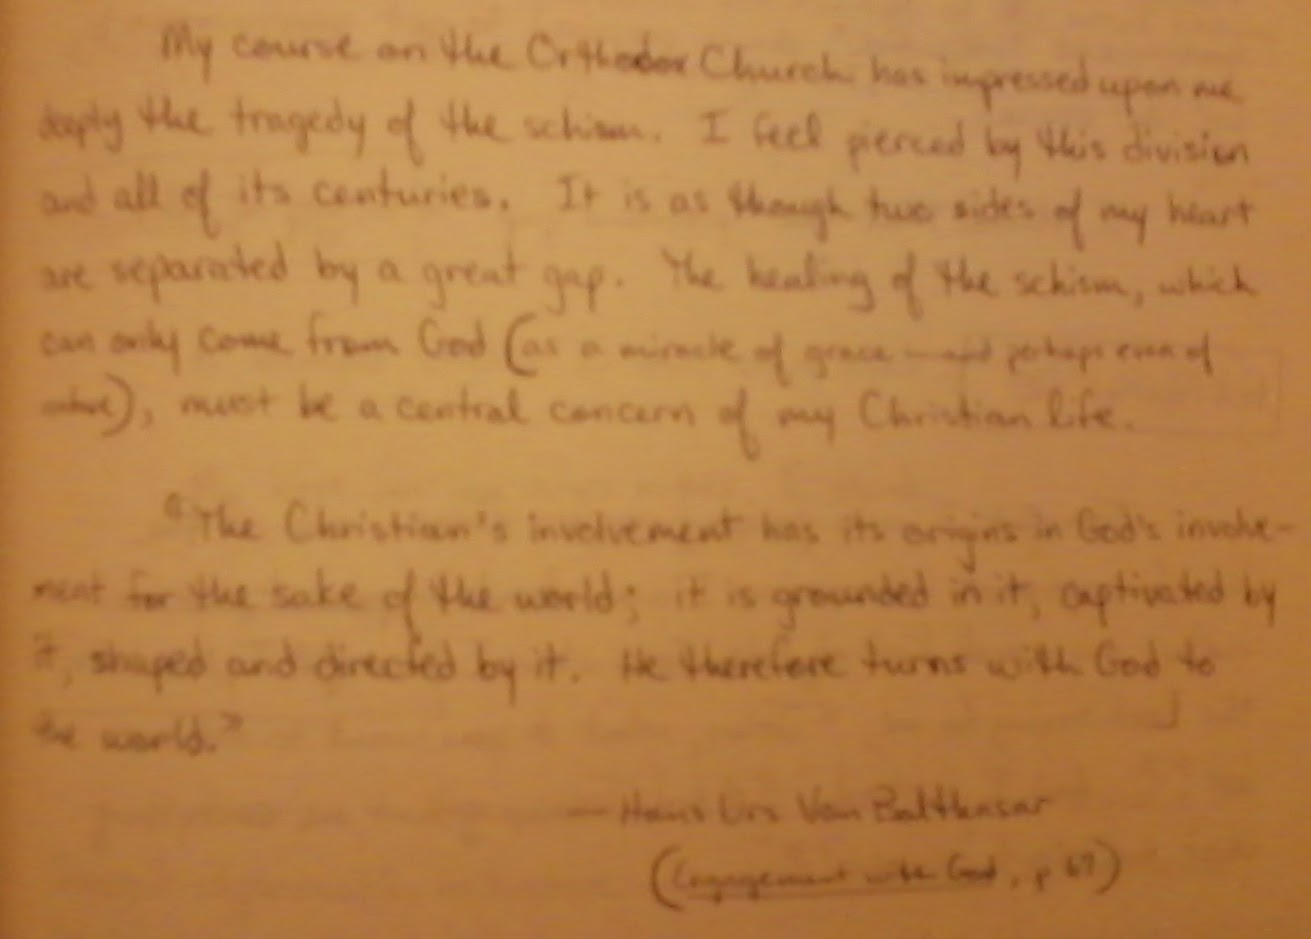 My course on the Orthodox Church has impressed upon me
deeply the tragedy of the schism. I feel pierced by this division
and all of its centuries. It is as though two sides of my heart
are separated by a great gap. The healing of the schism, which
can only come from God (as a miracle of grace—and perhaps even of
), must be a central concern of my Christian life.
"The Christian's involvement has its origins in God's involve-
ment for the sake of the world; it is grounded in it, captivated by
it, shaped and directed by it. He therefore turns with God to
the world."
— Hans Urs Von Balthasar
(Engagement with God, p 67)